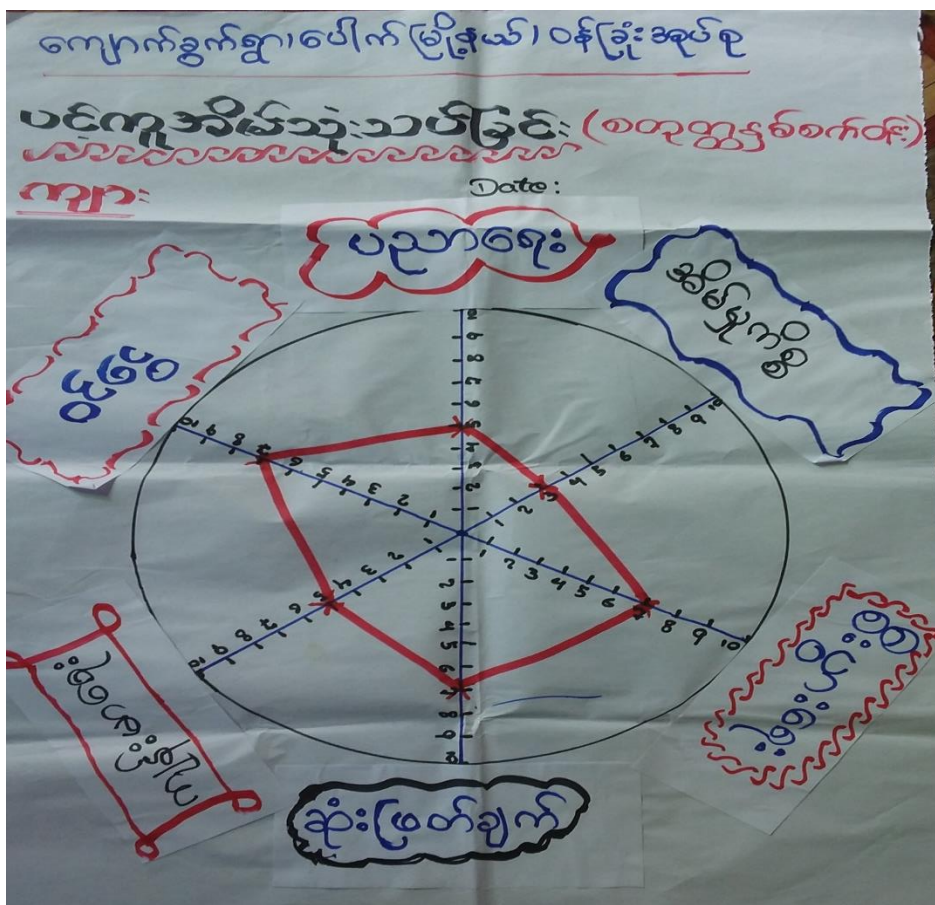 ကျောက်ခွက်ရွာ၊ပေါက်မြို့နယ်၊ဝန်ခြုံးအုပ်စု
ပင့်ကူအိမ်သုံးသပ်ခြင်း (စတုတ္ထနှစ်စက်ဝန်း)
ကျား
Date:
ပညာရေး
အိမ်မှုကိစ္စ
ငွေ
ဆုံးဖြတ်ချက်
10
9
8
7
6
5
4
3
2
1
1
2
3
4
5
6
7
8
9
10
1
2
3
4
5
6
7
8
9
10
1
2
3
4
5
6
7
8
9
10
1
2
3
4
5
6
7
8
9
10
1
2
3
4
5
6
7
8
9
10